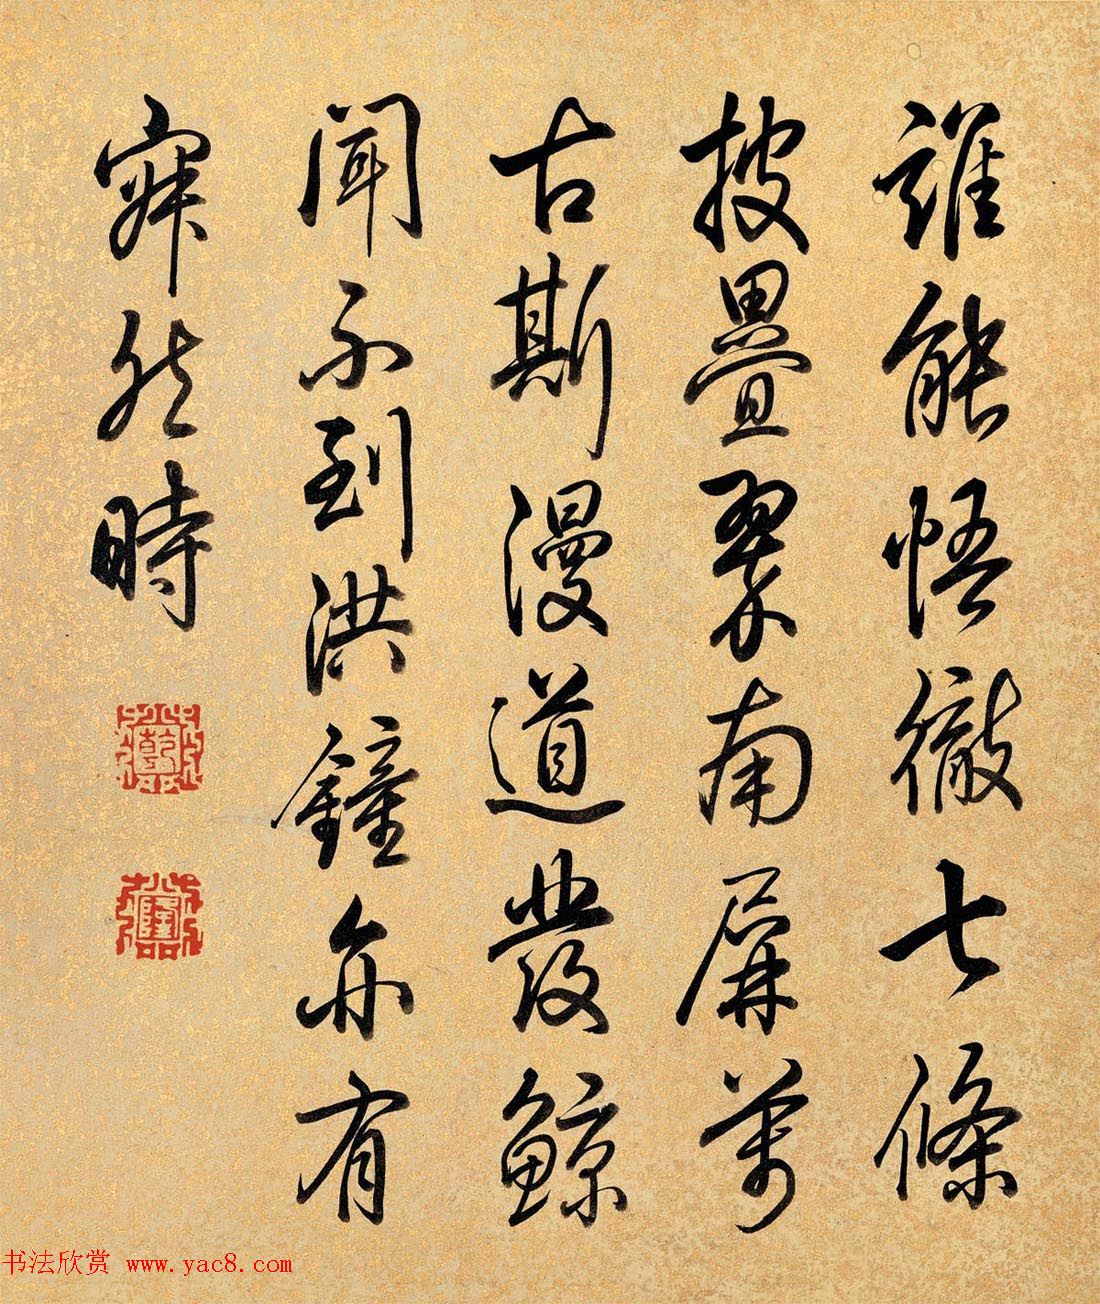 誰能悟徹七條
披疊翠南屏萬
古斯漫道發鯨
聞不到洪鐘亦有
寂然時
乾
隆
书法欣赏 www.yac8.com